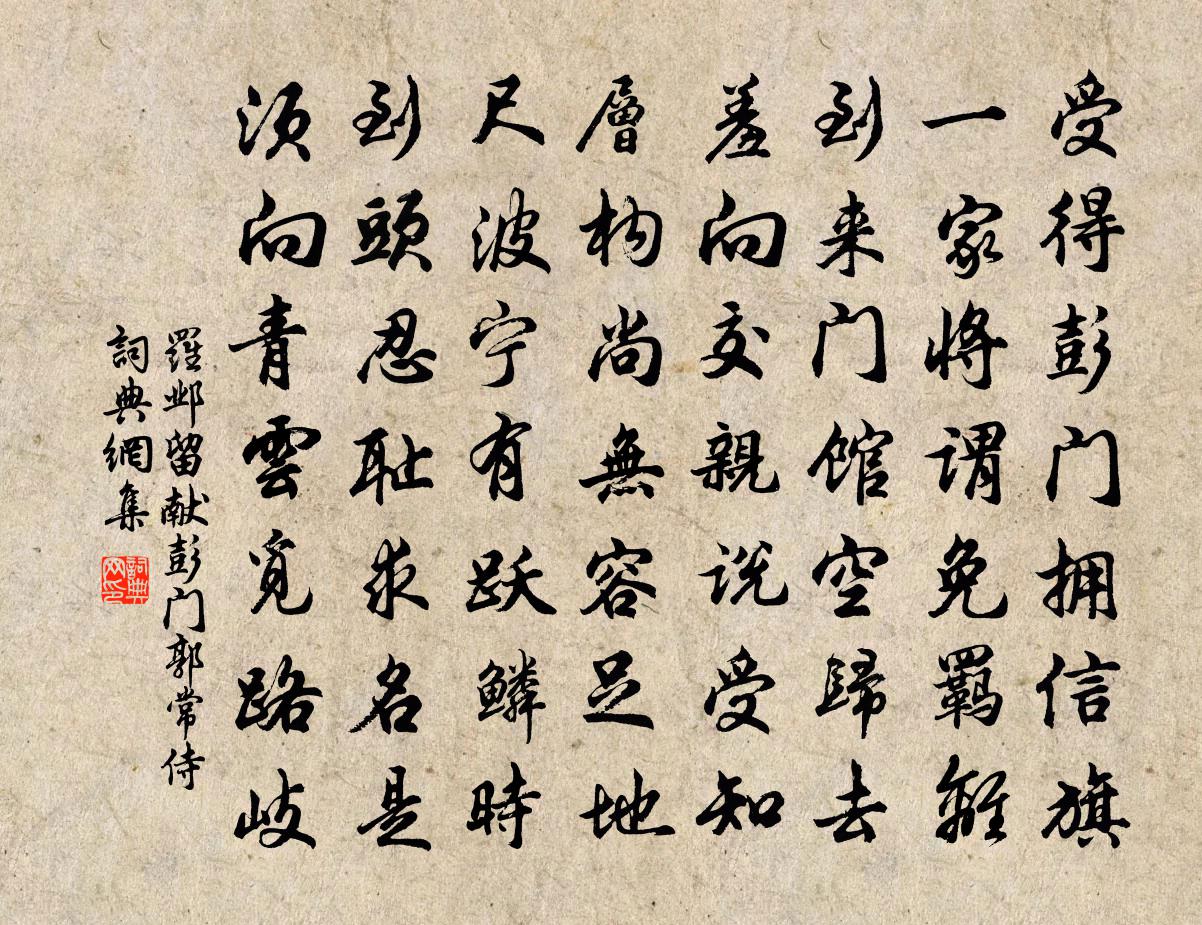 受得彭门拥信旗
一家将谓免羁離
到来门馆空歸去
羞向交親说受知
層构尚無容足地
尺波宁有跃鳞時
到頭忍耻求名是
须向青雲觅路岐
羅邺留献彭门郭常侍
詞典網集
詞典网印